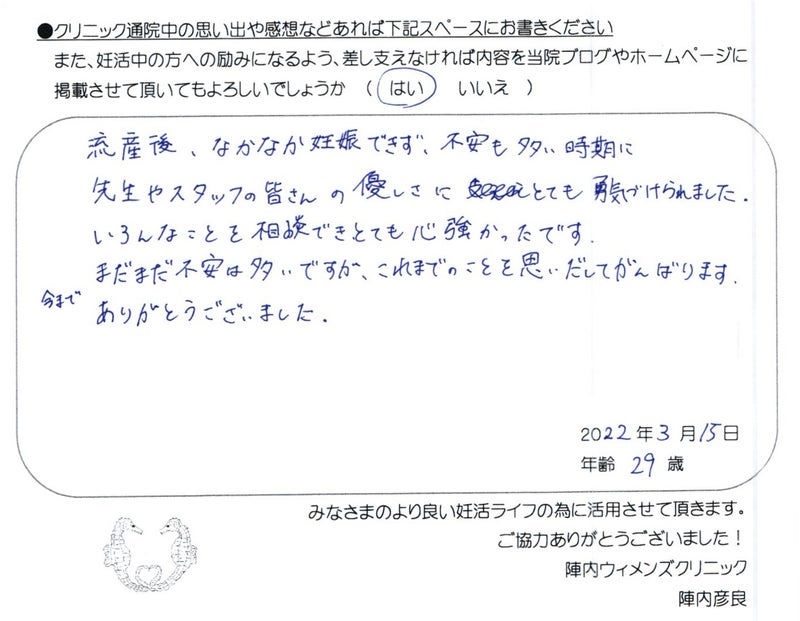 ●クリニック通院中の思い出や感想などあれば下記スペースにお書きください
また、妊活中の方への励みになるよう、差し支えなければ内容を当院ブログやホームページに
掲載させて頂いてもよろしいでしょうか （ はい いいえ ）
流産後、なかなか妊娠できず、不安も多い時期に
先生やスタッフの皆さんの優しさに とても勇気づけられました。
いろんなことを相談できとても心強かったです。
まだまだ不安は多いですが、これまでのことを思いだしてがんばります。
今まで ありがとうございました。
2022年3月15日
年齢 29 歳
みなさまのより良い妊活ライフの為に活用させて頂きます。
ご協力ありがとうございました！
陣内ウィメンズクリニック
陣内彦良